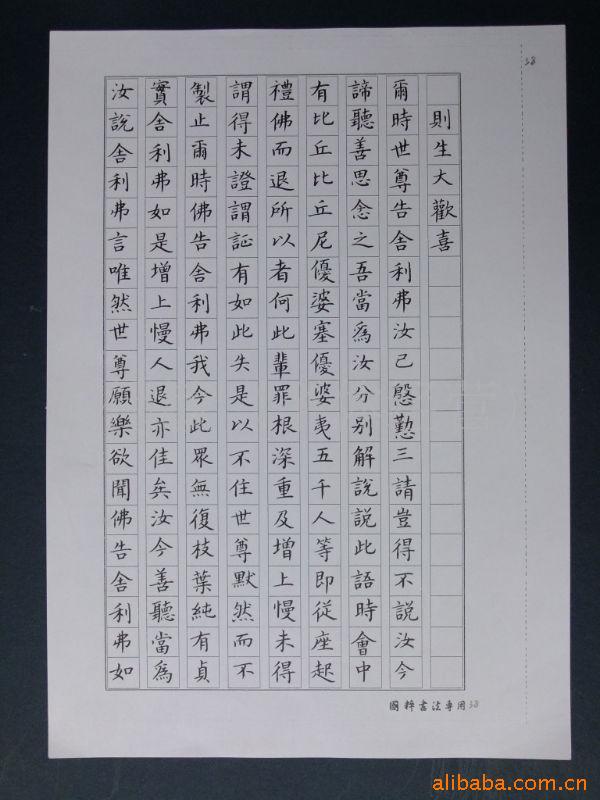 38
則生大歡喜
爾時世尊告舍利弗汝已慇懃三請豈得不說汝今
諦聽善思念之吾當爲汝分別解說說此語時會中
有比丘比丘尼優婆塞優婆夷五千人等即從座起
禮佛而退所以者何此輩罪根深重及增上慢未得
謂得未證謂証有如此失是以不住世尊默然而不
製止爾時佛告舍利弗我今此眾無復枝葉純有貞
實舍利弗如是增上慢人退亦佳矣汝今善聽當爲
汝說舍利弗言唯然世尊願樂欲聞佛告舍利弗如
國粹書法專用38
alibaba.com.cn